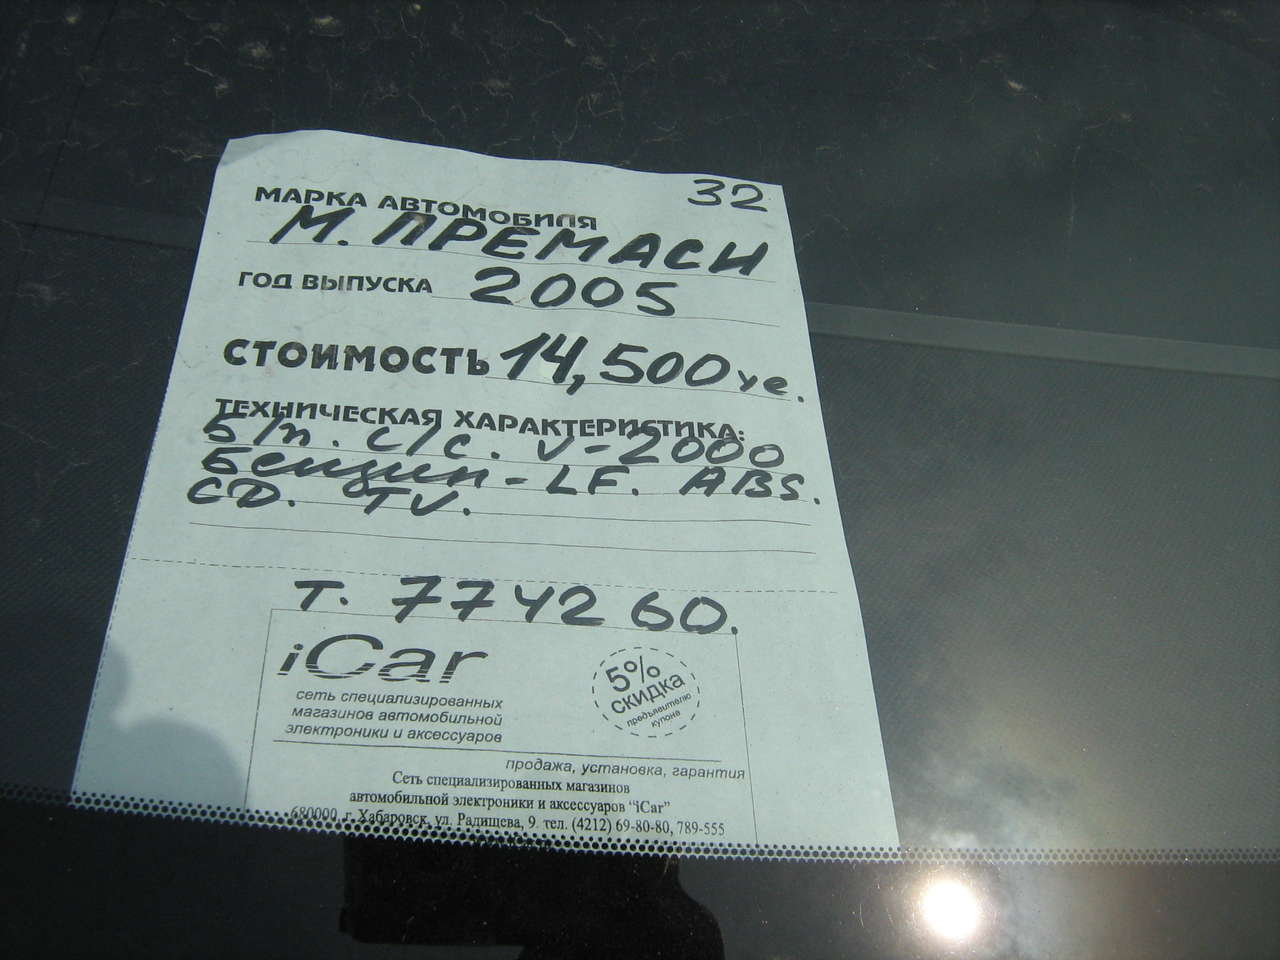 32
МАРКА АВТОМОБИЛЯ
М. ПРЕМАСИ
ГОД ВЫПУСКА 2005
СТОИМОСТЬ 14,500 уе.
ТЕХНИЧЕСКАЯ ХАРАКТЕРИСТИКА:
Б/п. с/с. V-2000
Бензин - LF. ABS.
CD. TV.
т. 774260.
iCar
5% СКИДКА
предъявителю
купона
сеть специализированных
магазинов автомобильной
электроники и аксессуаров
продажа, установка, гарантия
Сеть специализированных магазинов
автомобильной электроники и аксессуаров "iCar"
680000, г. Хабаровск, ул. Радищева, 9. тел. (4212) 69-80-80, 789-555